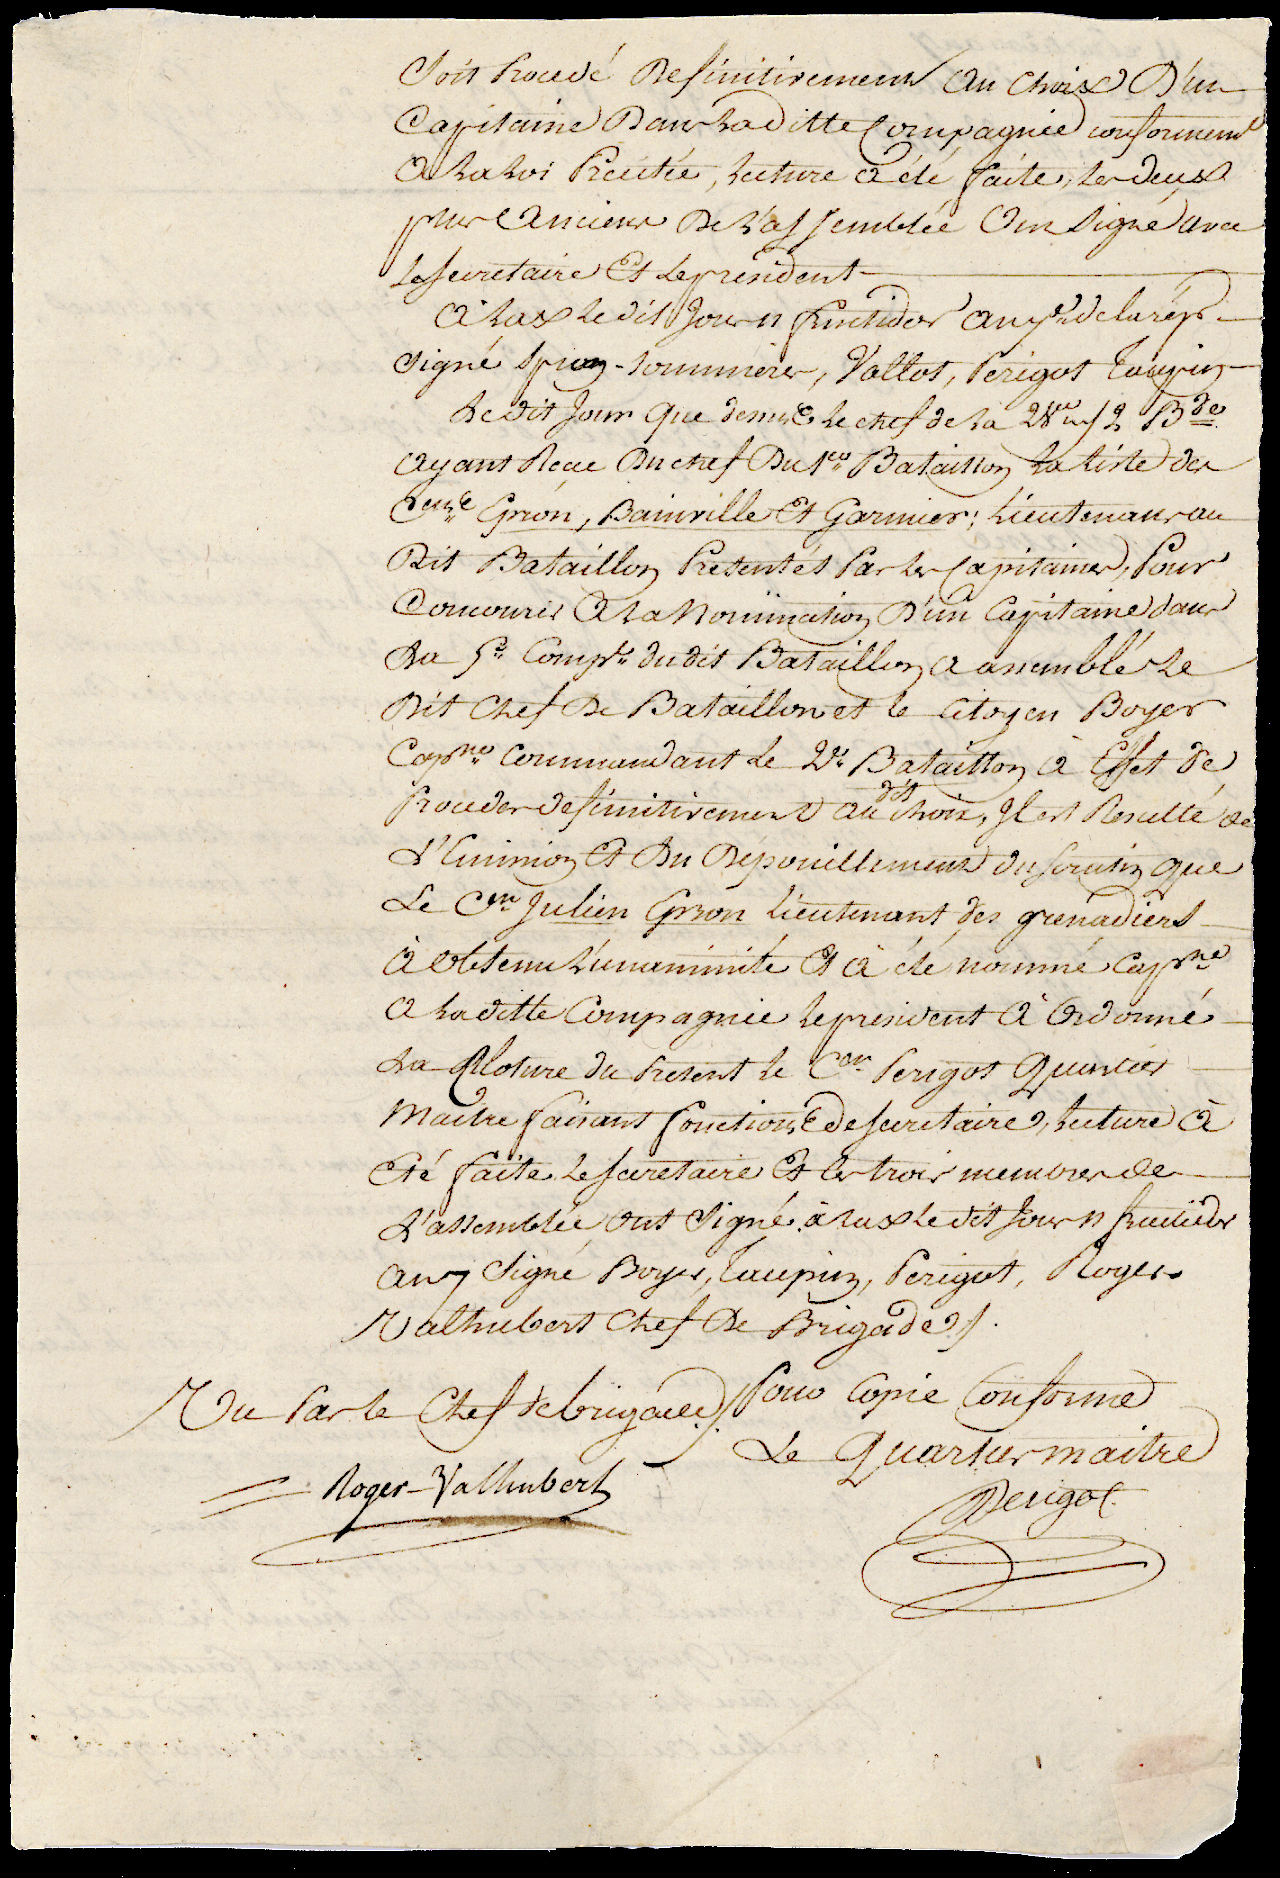 Soit Procedé Definitivement au choix D'un
Capitaine Dans La ditte Compagnie conformemt
a La Loi Précitée, Lecture a été faite, les deux
plus anciens De L'assemblée ont signé avec
le secretaire Et le president
à Lax le dit Jour 11 fructidor an 7e de la rép
signé Sommérer, Vallot, Perigot Taupin
Le dit Jour que dessus le chef de la 28eme 1/2 Bde
ayant Reçu Du chef Du 1er Bataillon la Liste des
Cens Grion, Bainville Et Garnier, Lieutenans au
Dit Bataillon Presentés Par les Capitaines, Pour
Concourir à la Nomination D'un Capitaine dans
La 5e Compie du dit Bataillon a assemblé le
Dit Chef De Bataillon et le Citoyen Boyer
Capne Commandant le 2e Bataillon à Effet de
Proceder definitivement au dit choix, Il est Resulté de
L'Emmion Et Du Depouillement du scrutin que
Le Cen Julien Grion Lieutenant des grenadiers
à obtenu L'unanimité Et à été nommé Capne
a La ditte Compagnie le president à Ordonné
La Cloture du Present le Cen Perigot Quartier
Maitre faisant fonctions de secretaire, Lecture à
Eté faite le secretaire Et les trois membres de
L'assemblée ont signé à Lax le dit Jour 11 fructidor
an 7 Signé Boyer, Taupin, Perigot, Roger
Valhubert Chef De Brigade ./.
Vu Par le Chef de brigade ./. Pour Copie Conforme
Le Quartier maitre
Roger-Valhubert
Perigot